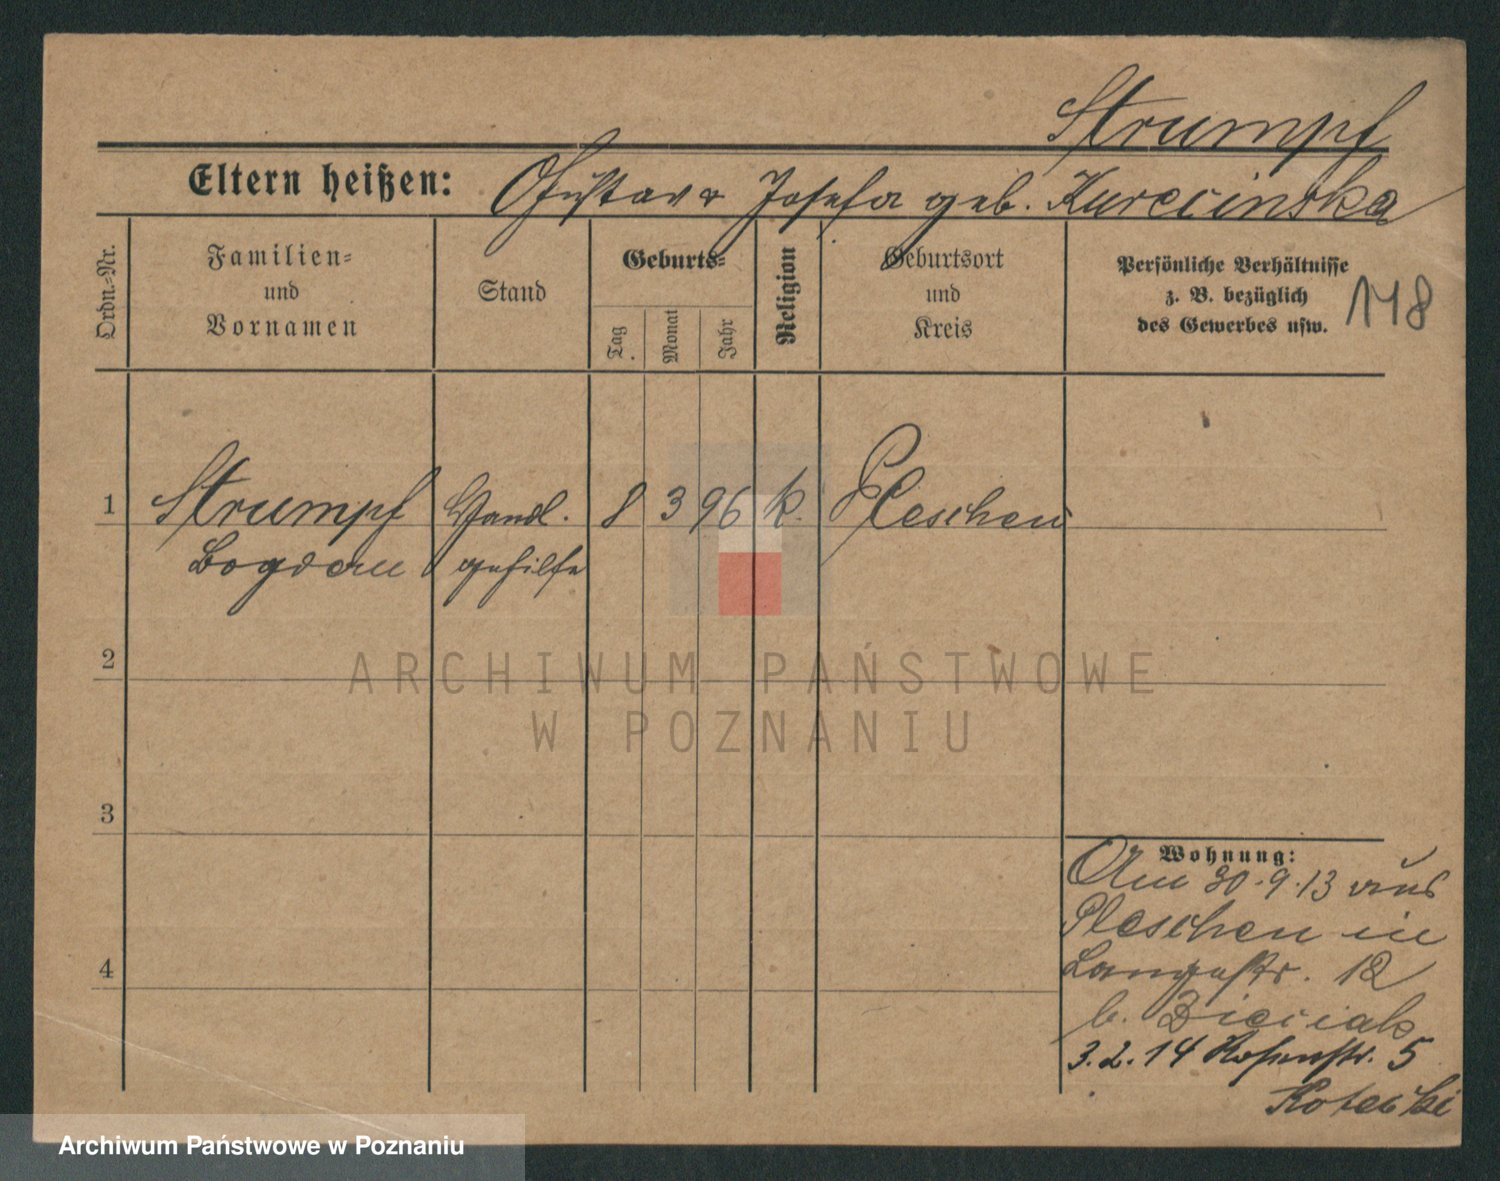 Strumpf
Eltern heißen: Gustav & Josefa geb. Kurecinska
Ordn.-Nr.
Familien-
und
Vornamen
Stand
Geburts-
Tag.
Monat
Jahr
Religion
Geburtsort
und
Kreis
Persönliche Verhältnisse
z. B. bezüglich
des Gewerbes usw.
118
1 Strumpf Handl. 8 3 96 k. Pleschen
Bogdan gehilfe
2
ARCHIWUM PAŃSTWOWE
W POZNANIU
3
Wohnung:
Am 30.9.13 aus
Pleschen in
4
Langestr. 12
b.
3.2.14 Rosenstr. 5
Archiwum Państwowe w Poznaniu